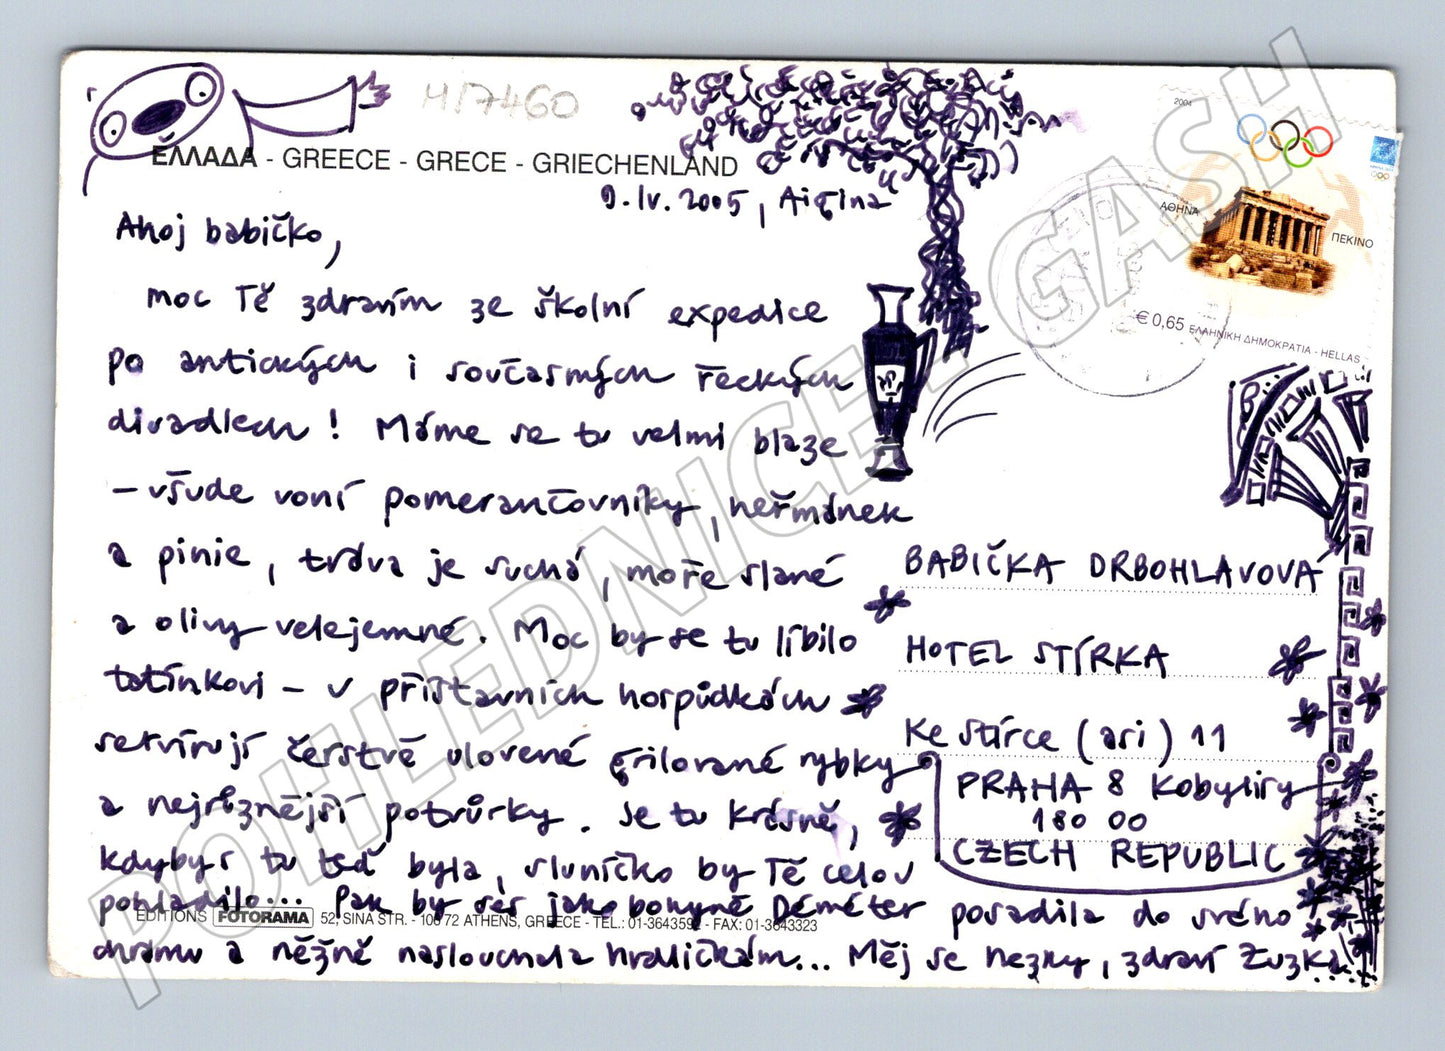 H17460
ΕΛΛΑΔΑ - GREECE - GRECE - GRIECHENLAND
9. IV. 2005, Aigina
Ahoj babičko,
moc Tě zdravím ze školní expedice
po antických i současných řeckých
divadlech! Máme se tu velmi blaze
– všude voní pomerančovníky, heřmánek
a pinie, tráva je suchá, moře slané
a olivy velejemné. Moc by se tu líbilo
tatínkovi – v přístavních hospůdkách
servírují čerstvě ulovené grilované rybky
a nejrůznější potvůrky. Je tu krásně,
kdybys tu teď byla, sluníčko by Tě celou
pohladilo... Pak by ses jako bohyně Déméter posadila do svého
chrámu a něžně naslouchala hrdličkám... Měj se hezky, zdraví Zuzka
EDITIONS FOTORAMA 52, SINA STR. - 106 72 ATHENS, GREECE - TEL.: 01-3643592 - FAX: 01-3643323
2004
ΑΘΗΝΑ
ΠΕΚΙΝΟ
€ 0,65 ΕΛΛΗΝΙΚΗ ΔΗΜΟΚΡΑΤΙΑ - HELLAS
BABIČKA DRBOHLAVOVA
HOTEL STÍRKA
Ke Stírce (asi) 11
PRAHA 8 Kobylisy
180 00
CZECH REPUBLIC
POHLEDNICE Z GASH